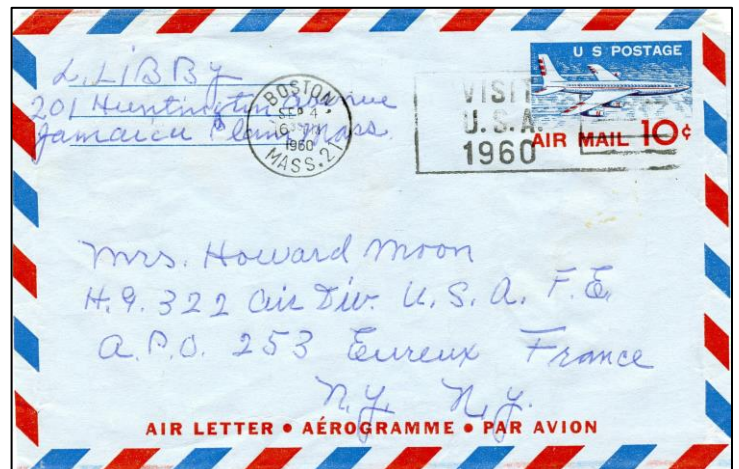 L. LIBBy
201 Huntington Avenue
Jamaica Plain, Mass.
BOSTON,
SEP 4
1960
MASS. 21
VISIT
U.S.A.
1960
U S POSTAGE
AIR MAIL 10¢
Mrs. Howard Moon
H.Q. 322 Air Div. U.S.A.F.E.
A.P.O. 253 Eureux France
N.Y. N.Y.
AIR LETTER • AÉROGRAMME • PAR AVION